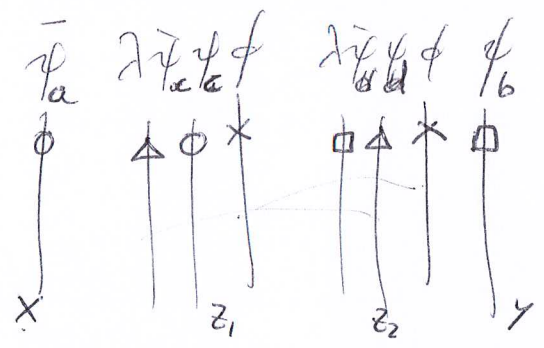 ψ̄a λψ̄cψcϕ λψ̄dψdϕ ψb
X Z1 Z2 Y